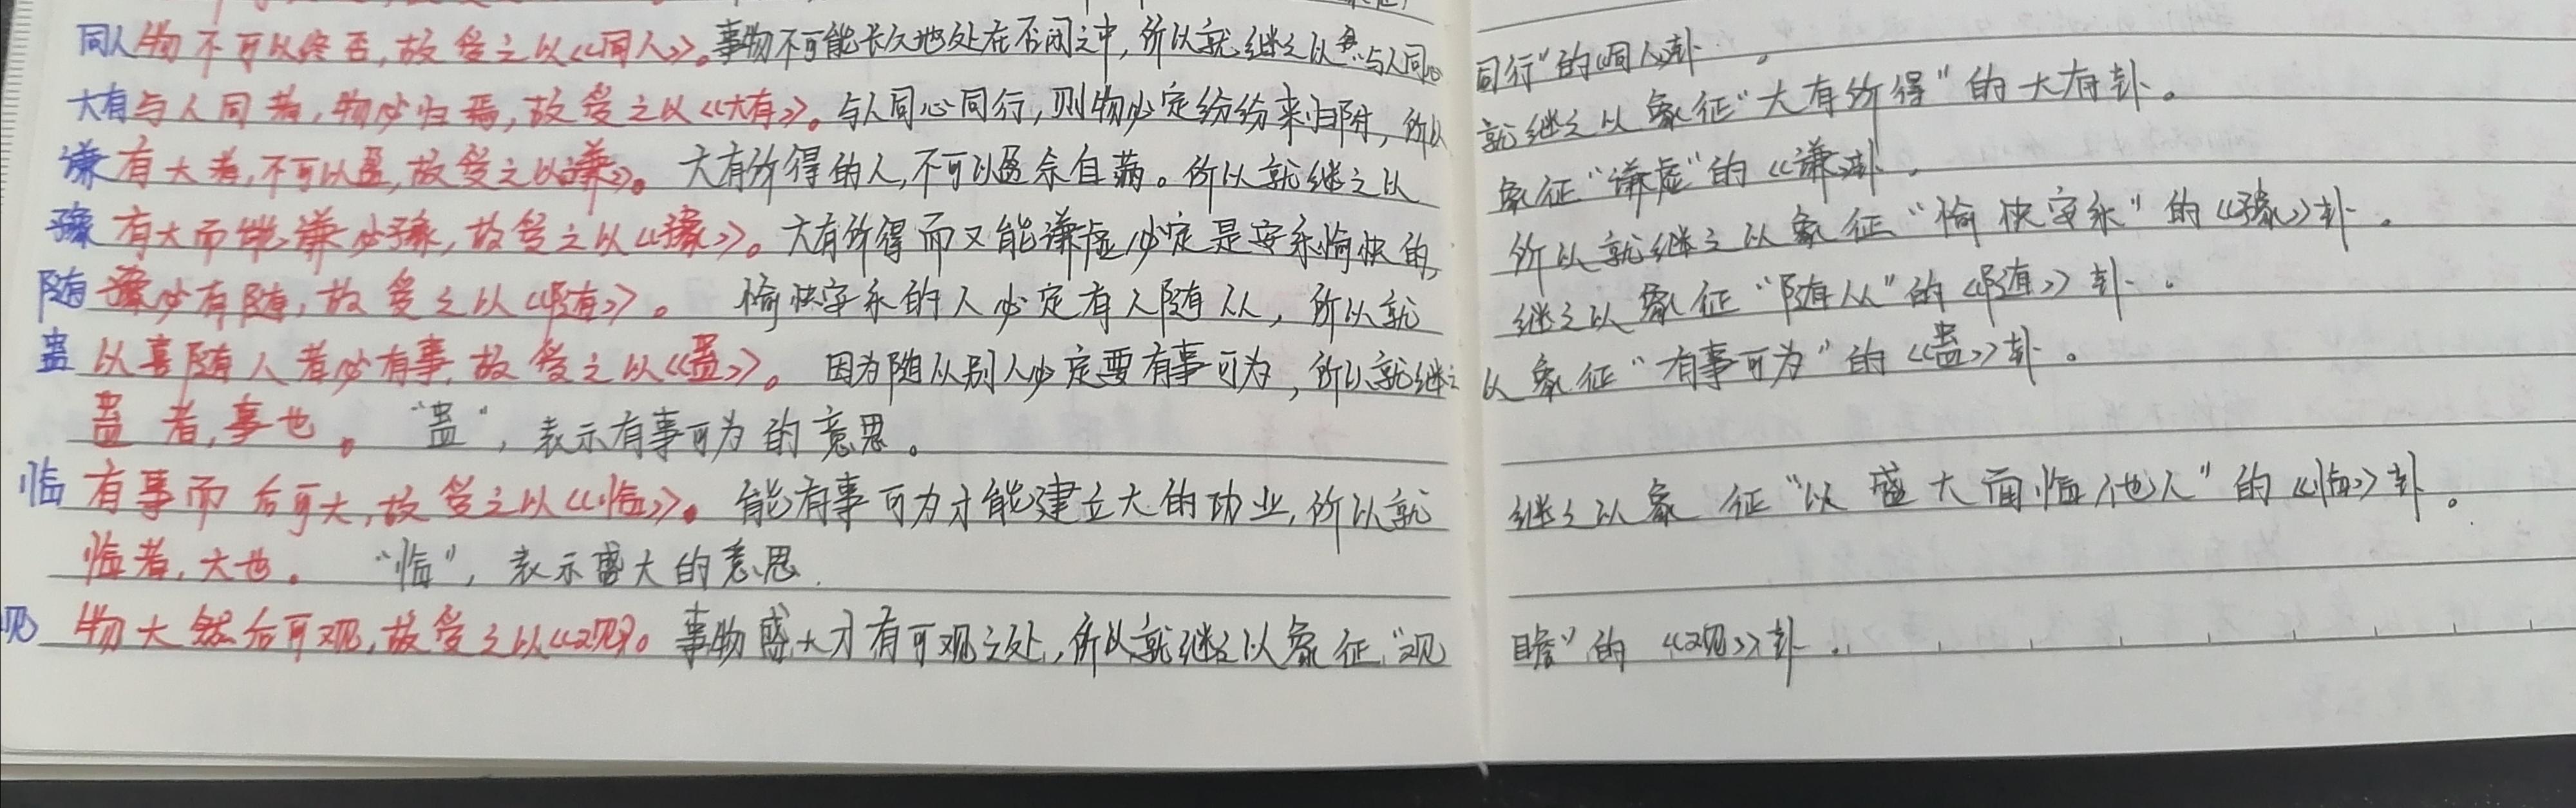 同人 物不可以终否，故受之以《同人》。事物不可能长久地处在否闭之中，所以就继之以象“与人同心
同行”的《同人》卦。
大有 与人同者，物必归焉，故受之以《大有》。与人同心同行，则物必定纷纷来归附，所以
就继之以象征“大有所得”的大有卦。
谦 有大者，不可以盈，故受之以《谦》。大有所得的人，不可以盈余自满。所以就继之以
象征“谦虚”的《谦》卦。
豫 有大而能谦必豫，故受之以《豫》。大有所得而又能谦虚必定是安乐愉快的，
所以就继之以象征“愉快安乐”的《豫》卦。
随 豫必有随，故受之以《随》。愉快安乐的人必定有人随从，所以就
继之以象征“随从”的《随》卦。
蛊 以喜随人者必有事，故受之以《蛊》。因为随从别人必定要有事可为，所以就继之
以象征“有事可为”的《蛊》卦。
蛊者，事也。“蛊”，表示有事可为的意思。
临 有事而后可大，故受之以《临》。能有事可为才能建立大的功业，所以就
继之以象征“以盛大面临他人”的《临》卦。
临者，大也。“临”，表示盛大的意思.
观 物大然后可观，故受之以《观》。事物盛大才有可观之处，所以就继之以象征“观
瞻”的《观》卦.